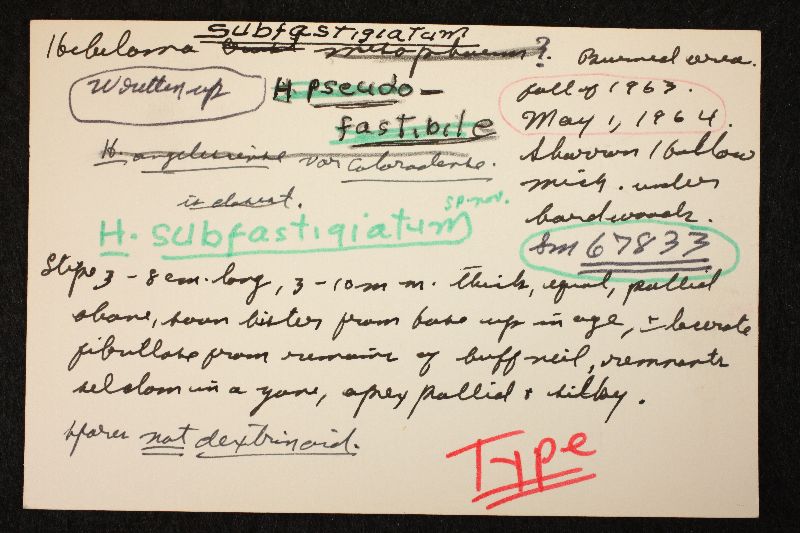 subfastigiatum
Hebeloma mesophaeum? Burned area.
Written up H. pseudo- fall of 1963.
fastibile May 1, 1964.
H. angelesiense var coloradense. Sharron Hollow
is closest. Mich. under
hardwoods.
H. subfastigiatum sp. nov. Sm 67833
Stipe 3-8 cm. long, 3-10 m m. thick, equal, pallid
above, soon bister from base up in age, ± lacerate
fibrillose from remains of buff veil, remnants
seldom in a zone, apex pallid + silky.
spores not dextrinoid.
Type